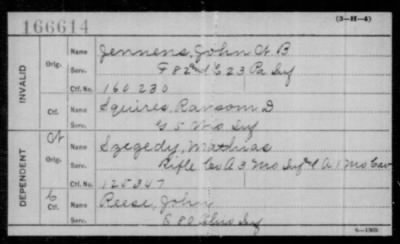 166614
(3-H-4)
INVALID
Orig.
Name Jennens, John A. B
Serv. F 82 & E 23 Pa Inf
Ctf. No. 160 230
Ctf.
Name Squires, Ransom D
Serv. G 5 Wis Inf
DEPENDENT
Orig.
Name Szegedy, Mathias
Serv. Rifle Co A 3 Mo Inf & A 1 Mo Cav
Ctf. No. 125247
C
Ctf.
Name Reese, John
Serv. 80 Ohio Inf